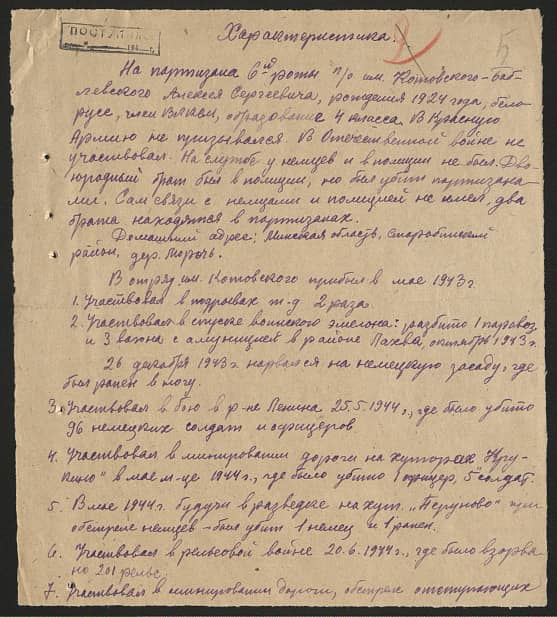 ПОСТУПИЛО
194 г.
Характеристика.
На партизана 6ой роты п/о им. Котовского - Баб-
левского Алексея Сергеевича, рождения 1924 года, бело-
русс, член ВЛКСМ, образование 4 класса. В Красную
Армию не призывался. В Отечественной войне не
участвовал. На службе у немцев и в полиции не был. Дво-
юродный брат был в полиции, но был убит партизана-
ми. Сам связи с немцами и полицией не имел, два
брата находятся в партизанах.
Домашний адрес: Минская область, Старобинский
район, дер. Морочь.
В отряд им. Котовского прибыл в мае 1943 г.
1. Участвовал в подрывах ж.д. 2 раза.
2. Участвовал в спуске воинского эшелона: разбито 1 паровоз
и 3 вагона с амуницией в районе Лахва, октябрь 1943 г.
26 декабря 1943 г. нарвался на немецкую засаду, где
был ранен в ногу.
3. Участвовал в бою в р-не Ленина 25.5.1944 г., где было убито
96 немецких солдат и офицеров.
4. Участвовал в минировании дороги на хуторах
в мае м-це 1944 г., где было убито 1 офицер, 5 солдат.
5. В мае 1944 г. будучи в разведке на хут. при
обстреле немцев - был убит 1 немец и 1 ранен.
6. Участвовал в рельсовой войне 20.6.1944 г., где было взорва-
но 201 рельс.
7. Участвовал в минировании дороги, обстрел отступающих